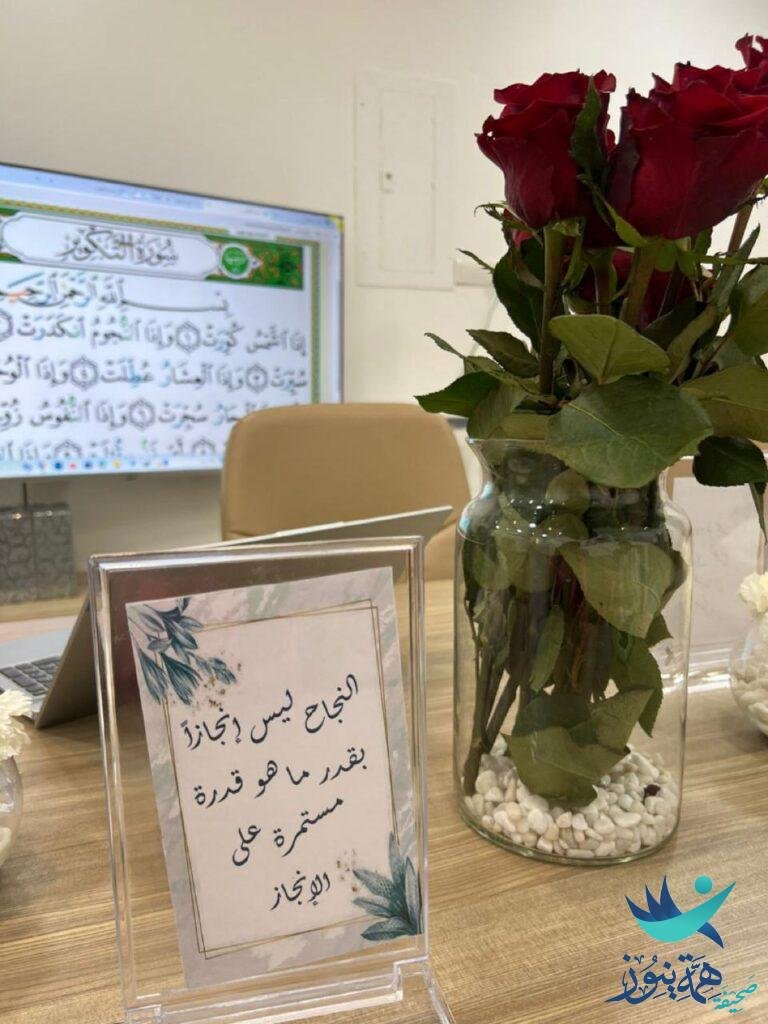 سُورَةُ التَّكْوِيرِ
بِسْمِ اللَّهِ الرَّحْمَٰنِ الرَّحِيمِ
إِذَا الشَّمْسُ كُوِّرَتْ ١ وَإِذَا النُّجُومُ انكَدَرَتْ
سُيِّرَتْ ٣ وَإِذَا الْعِشَارُ عُطِّلَتْ ٤ وَإِذَا
سُجِّرَتْ ٦ وَإِذَا النُّفُوسُ
النجاح ليس إنجازاً
بقدر ما هو قدرة
مستمرة على
الإنجاز
صَحِيفَة هِمَّة نيوز